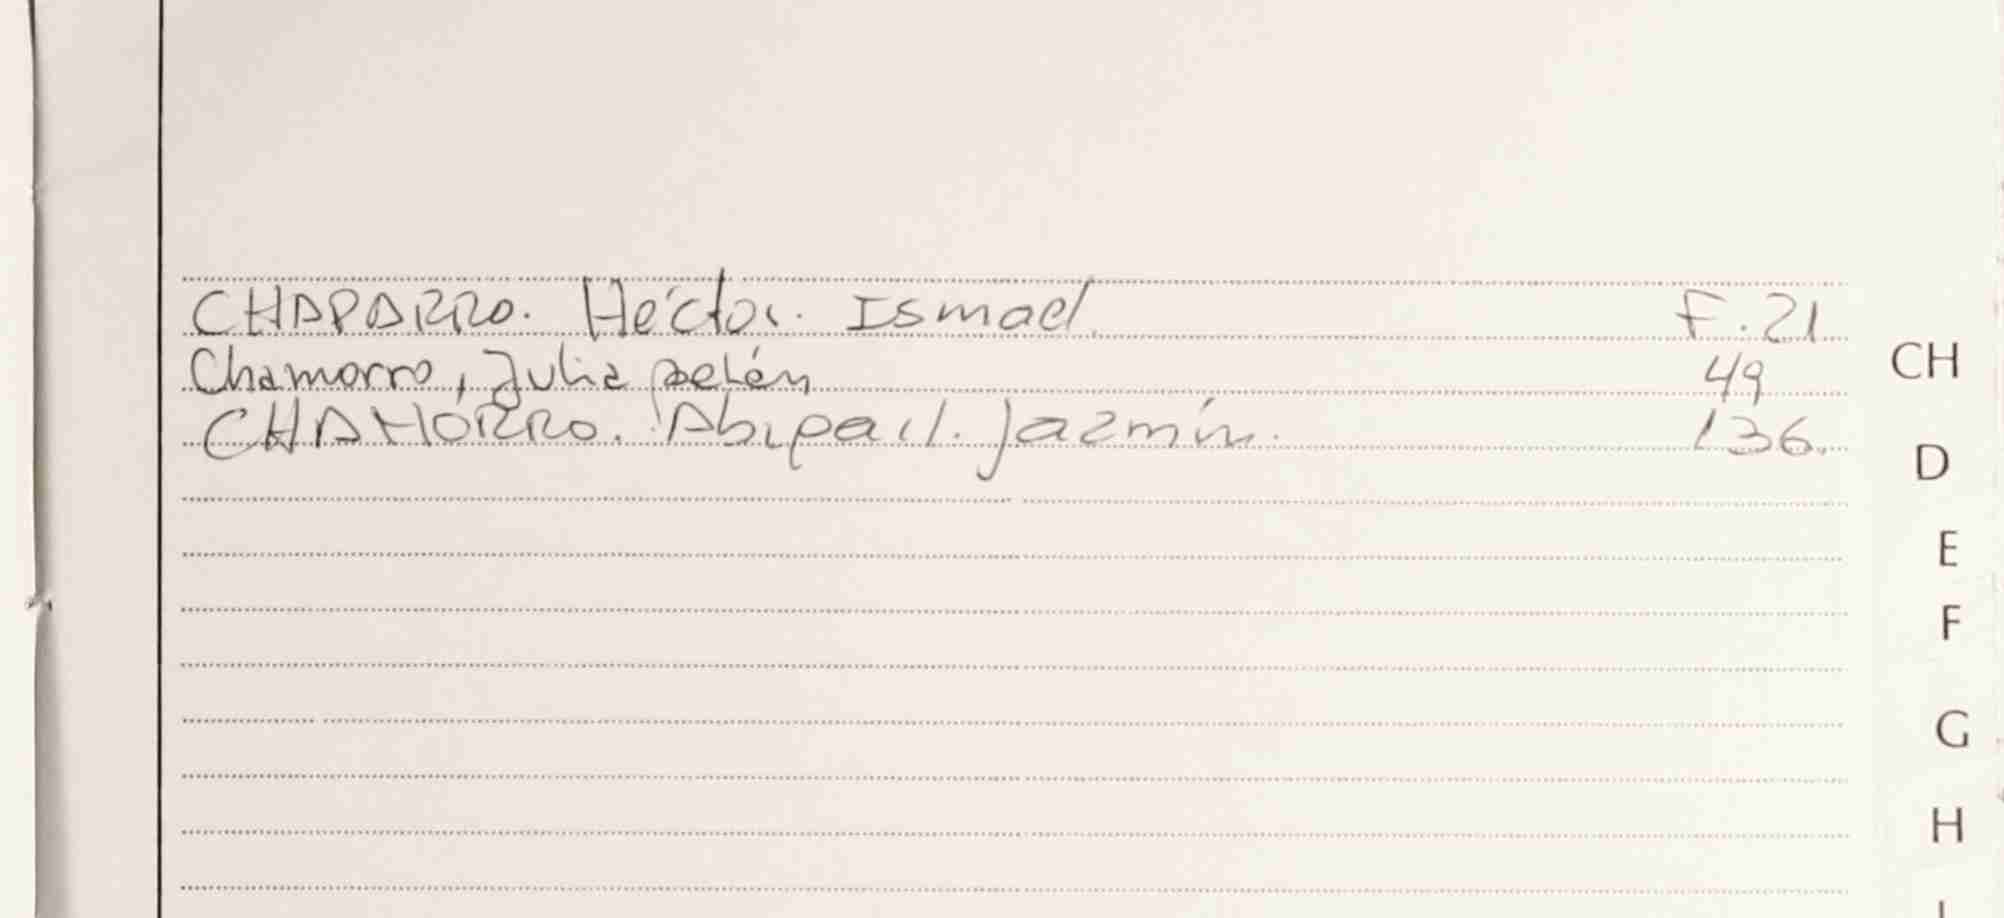 CHAPARRO. Héctor. Ismael. F.21
Chamorro, Julia Belén 49
CHAMORRO. Abigail. Jazmín. 136.
CH
D
E
F
G
H